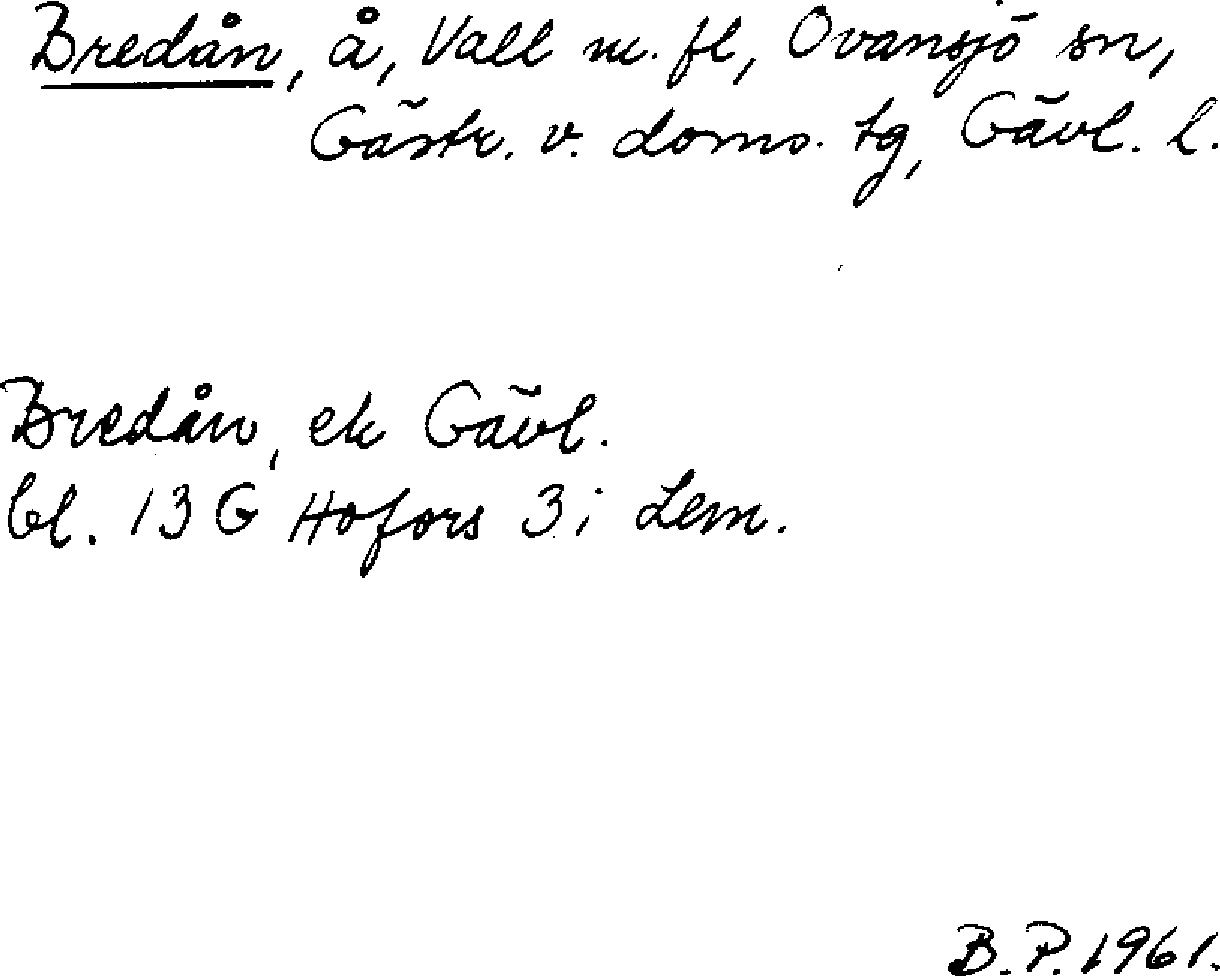 Bredån, å, Vall m. fl, Ovansjö sn,
Gästr. v. doms. tg, Gävl. l.
Bredån, ek Gävl.
bl. 13 G Hofors 3 i Lem.
B. P. 1961.